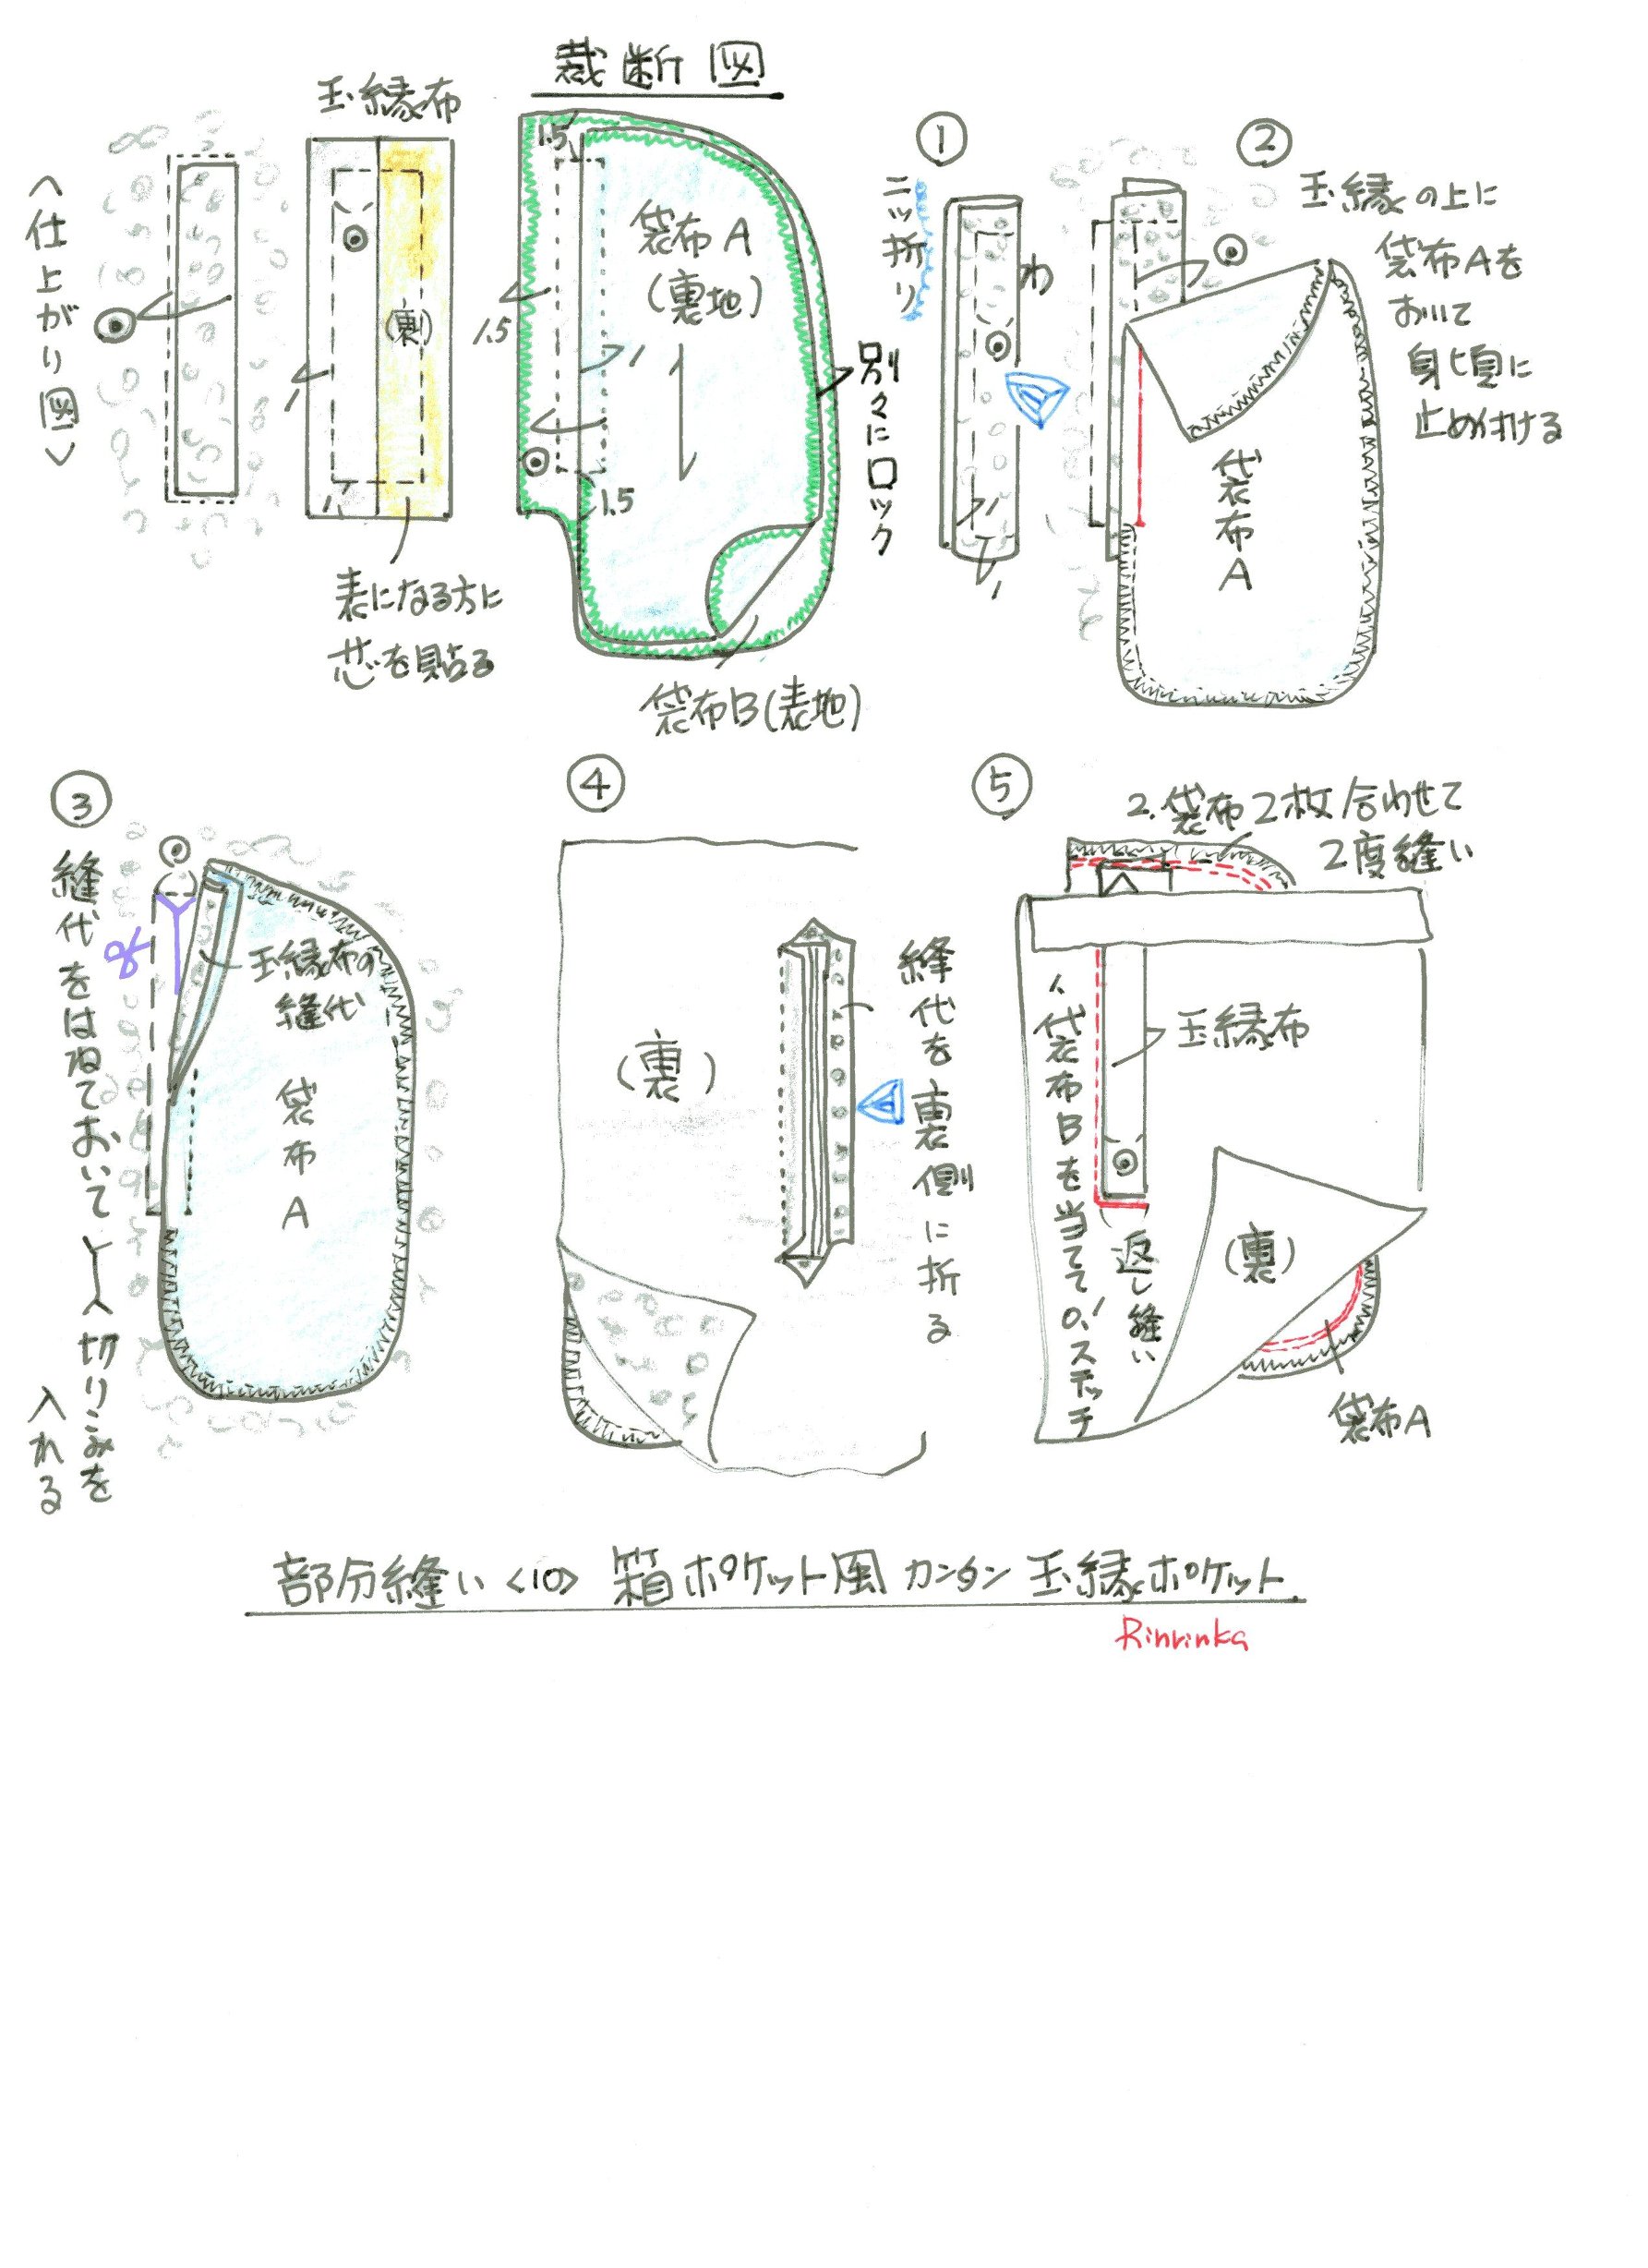 裁断図
<仕上がり図>
玉縁布
(裏)
1
1
表になる方に
芯を貼る
1.5
1.5
1.5
1
袋布A
(裏地)
別々にロック
袋布B(表地)
①
二ッ折り
わ
1
1
②
玉縁の上に
袋布Aを
おいて
身頃に
止め付ける
袋布A
③
縫代をはねておいて
切りこみを
入れる
玉縁布の
縫代
袋布A
④
(裏)
縫代を裏側に折る
⑤
2.袋布2枚合わせて
2度縫い
1、袋布Bを当てて0.1ステッチ
玉縁布
返し縫い
(裏)
袋布A
部分縫い<10> 箱ポケット風 カンタン 玉縁ポケット
Rinrinka